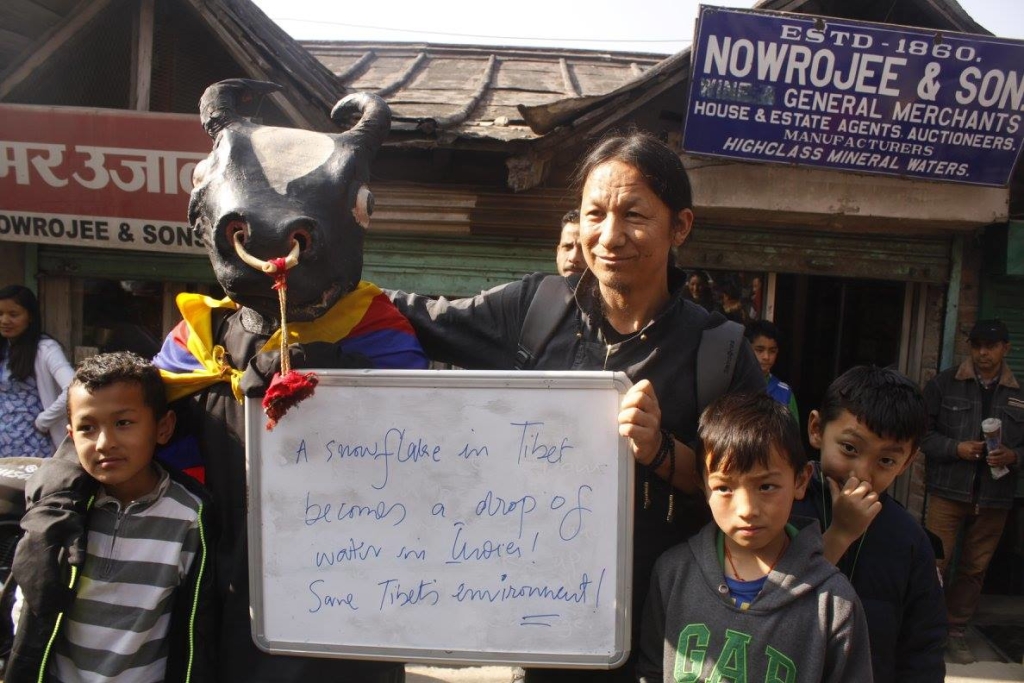 ESTD-1860.
NOWROJEE & SON
WINE &
GENERAL MERCHANTS
HOUSE & ESTATE AGENTS. AUCTIONEERS.
MANUFACTURERS
HIGHCLASS MINERAL WATERS.
मर उजाला
NOWROJEE & SONS
A snowflake in Tibet
becomes a drop of
water in India!
Save Tibet's environment!
GAP